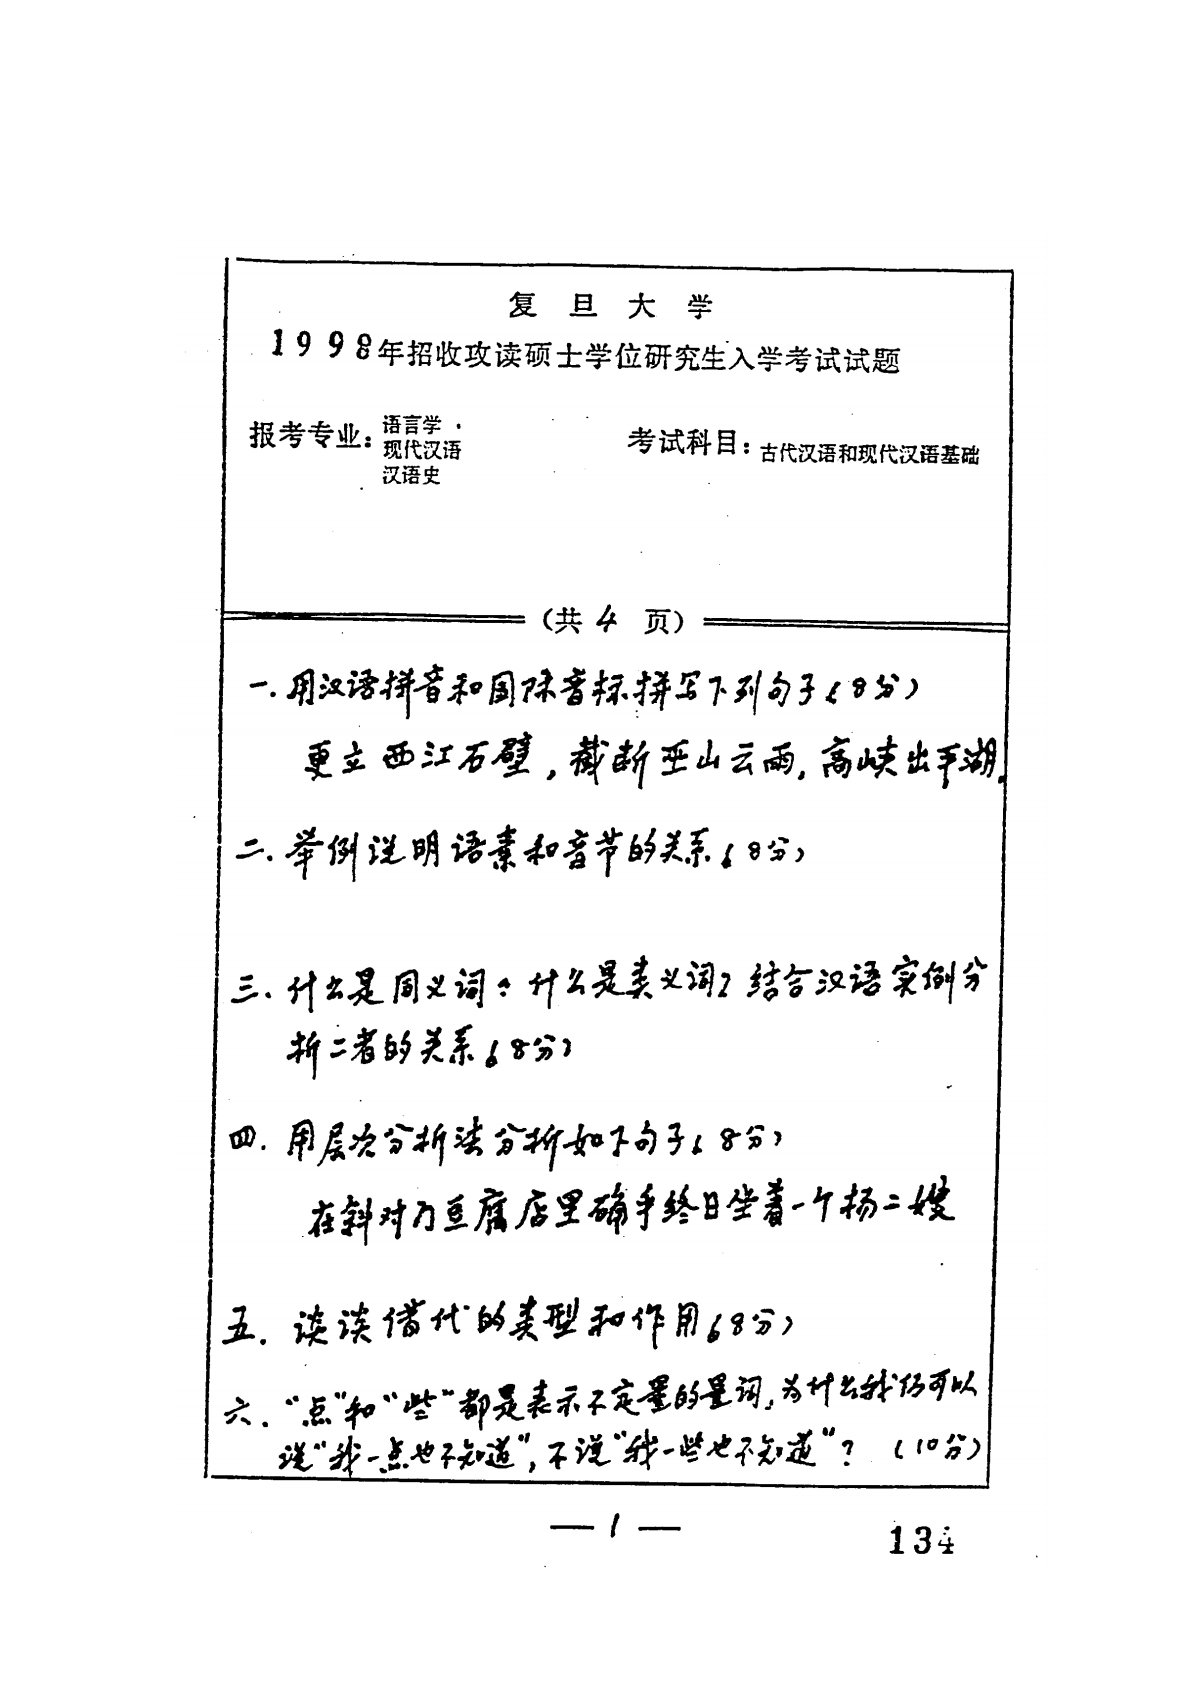 复旦大学
1998年招收攻读硕士学位研究生入学考试试题
报考专业：语言学·
现代汉语
汉语史
考试科目：古代汉语和现代汉语基础
（共 4 页）
一．用汉语拼音和国际音标拼写下列句子（8分）
更立西江石壁，截断巫山云雨，高峡出平湖。
二．举例说明语素和音节的关系（8分）
三．什么是同义词？什么是类义词？结合汉语实例分
析二者的关系（8分）
四．用层次分析法分析如下句子（8分）
在斜对门豆腐店里确乎终日坐着一个杨二嫂
五．谈谈借代的类型和作用（8分）
六．“点”和“些”都是表示不定量的量词，为什么我们可以
说“我一点也不知道”，不说“我一些也不知道”？（10分）
— 1 —
134